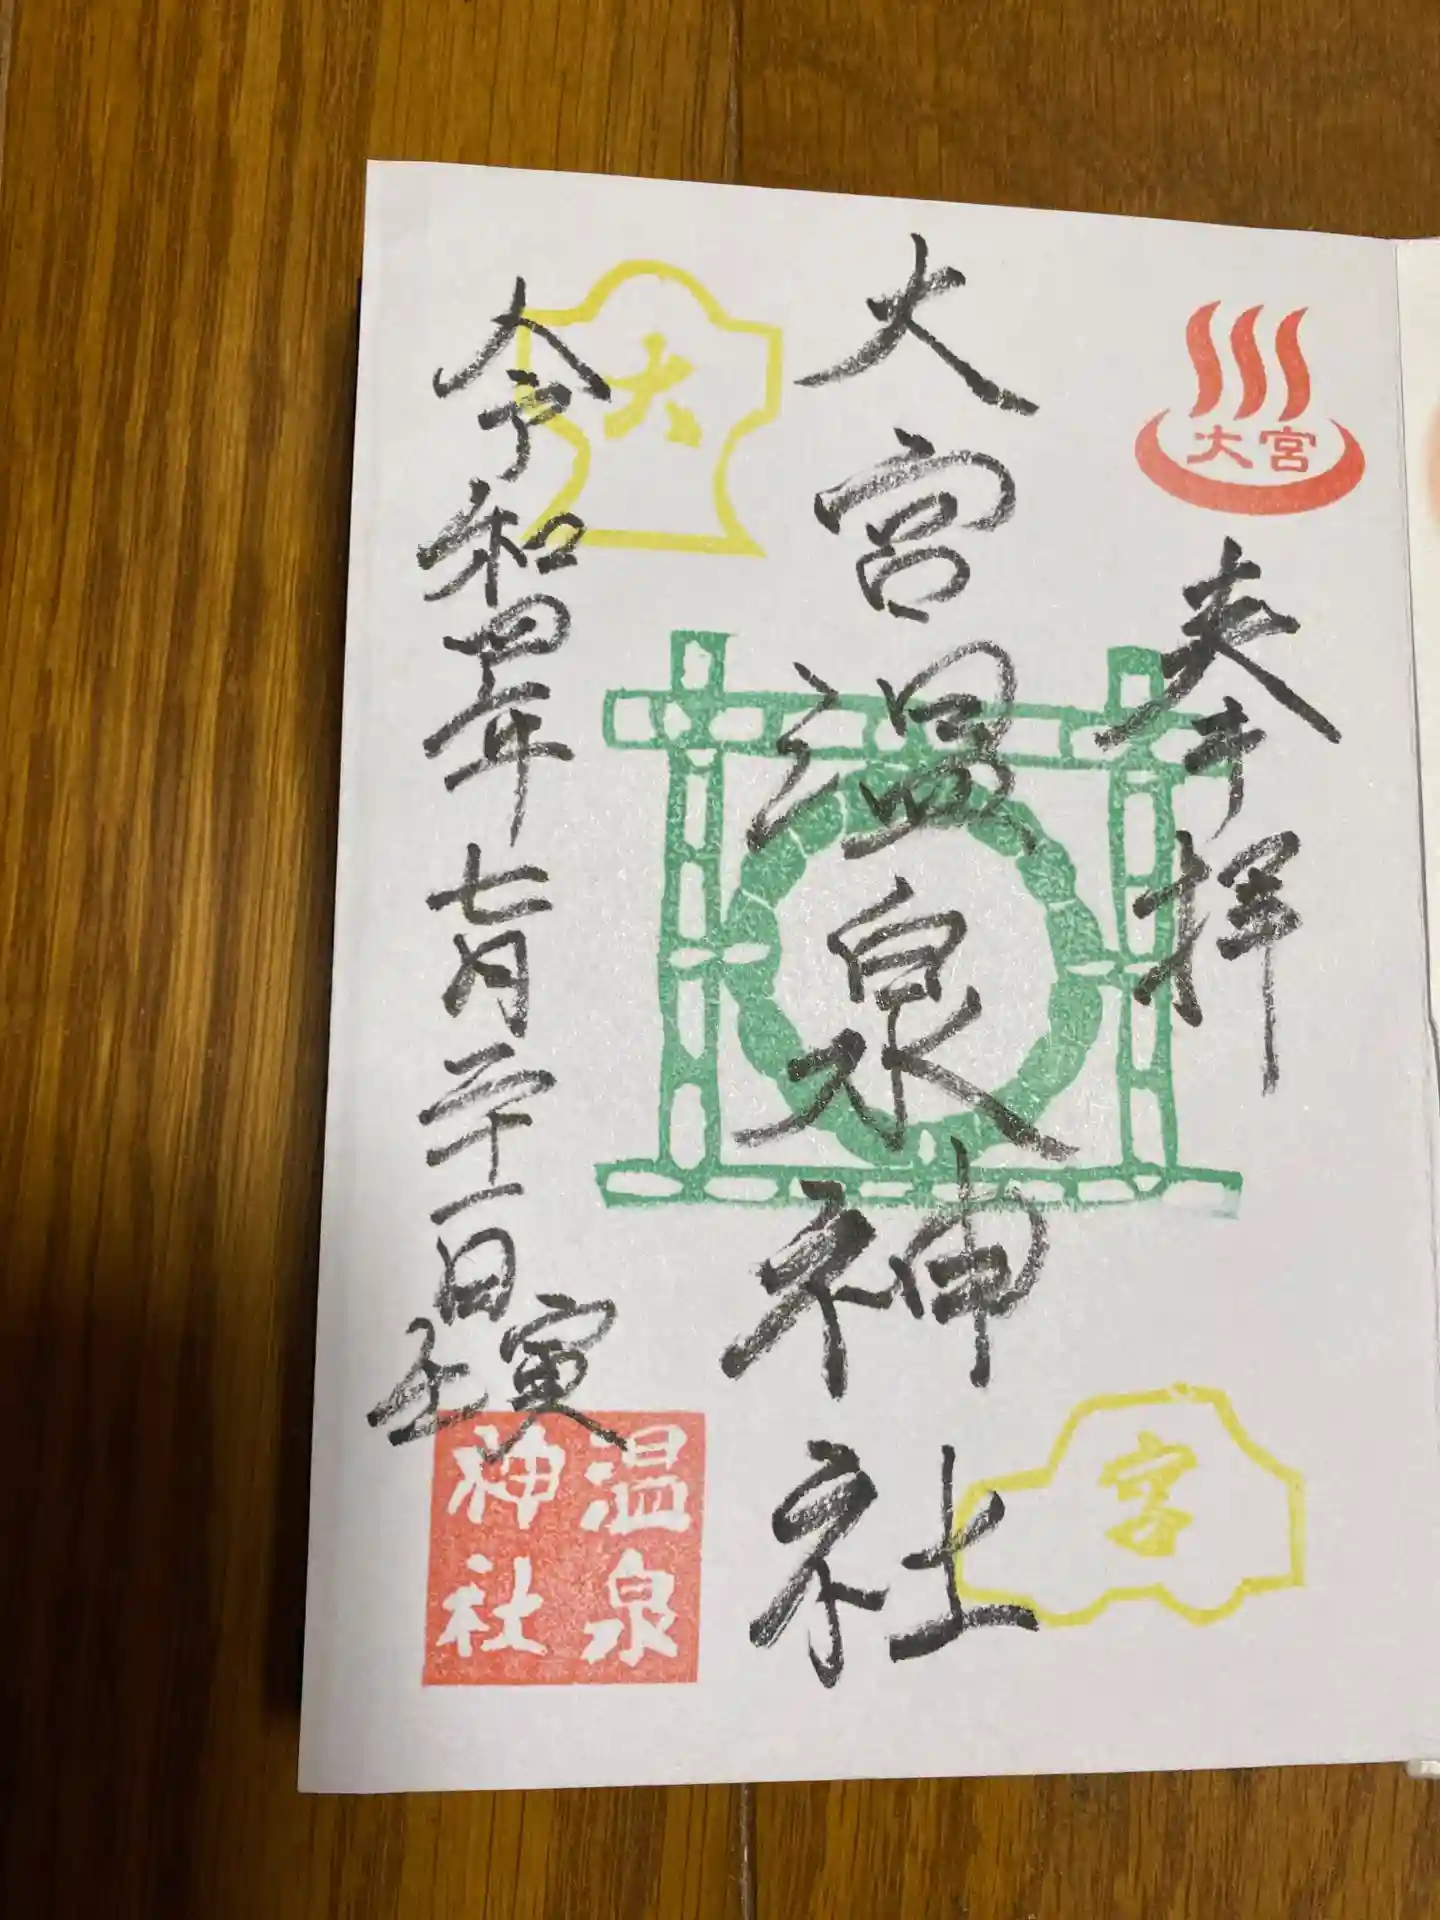 大宮
奉拝
大宮温泉神社
宮
大
令和四年七月二十一日
壬寅
温泉
神社